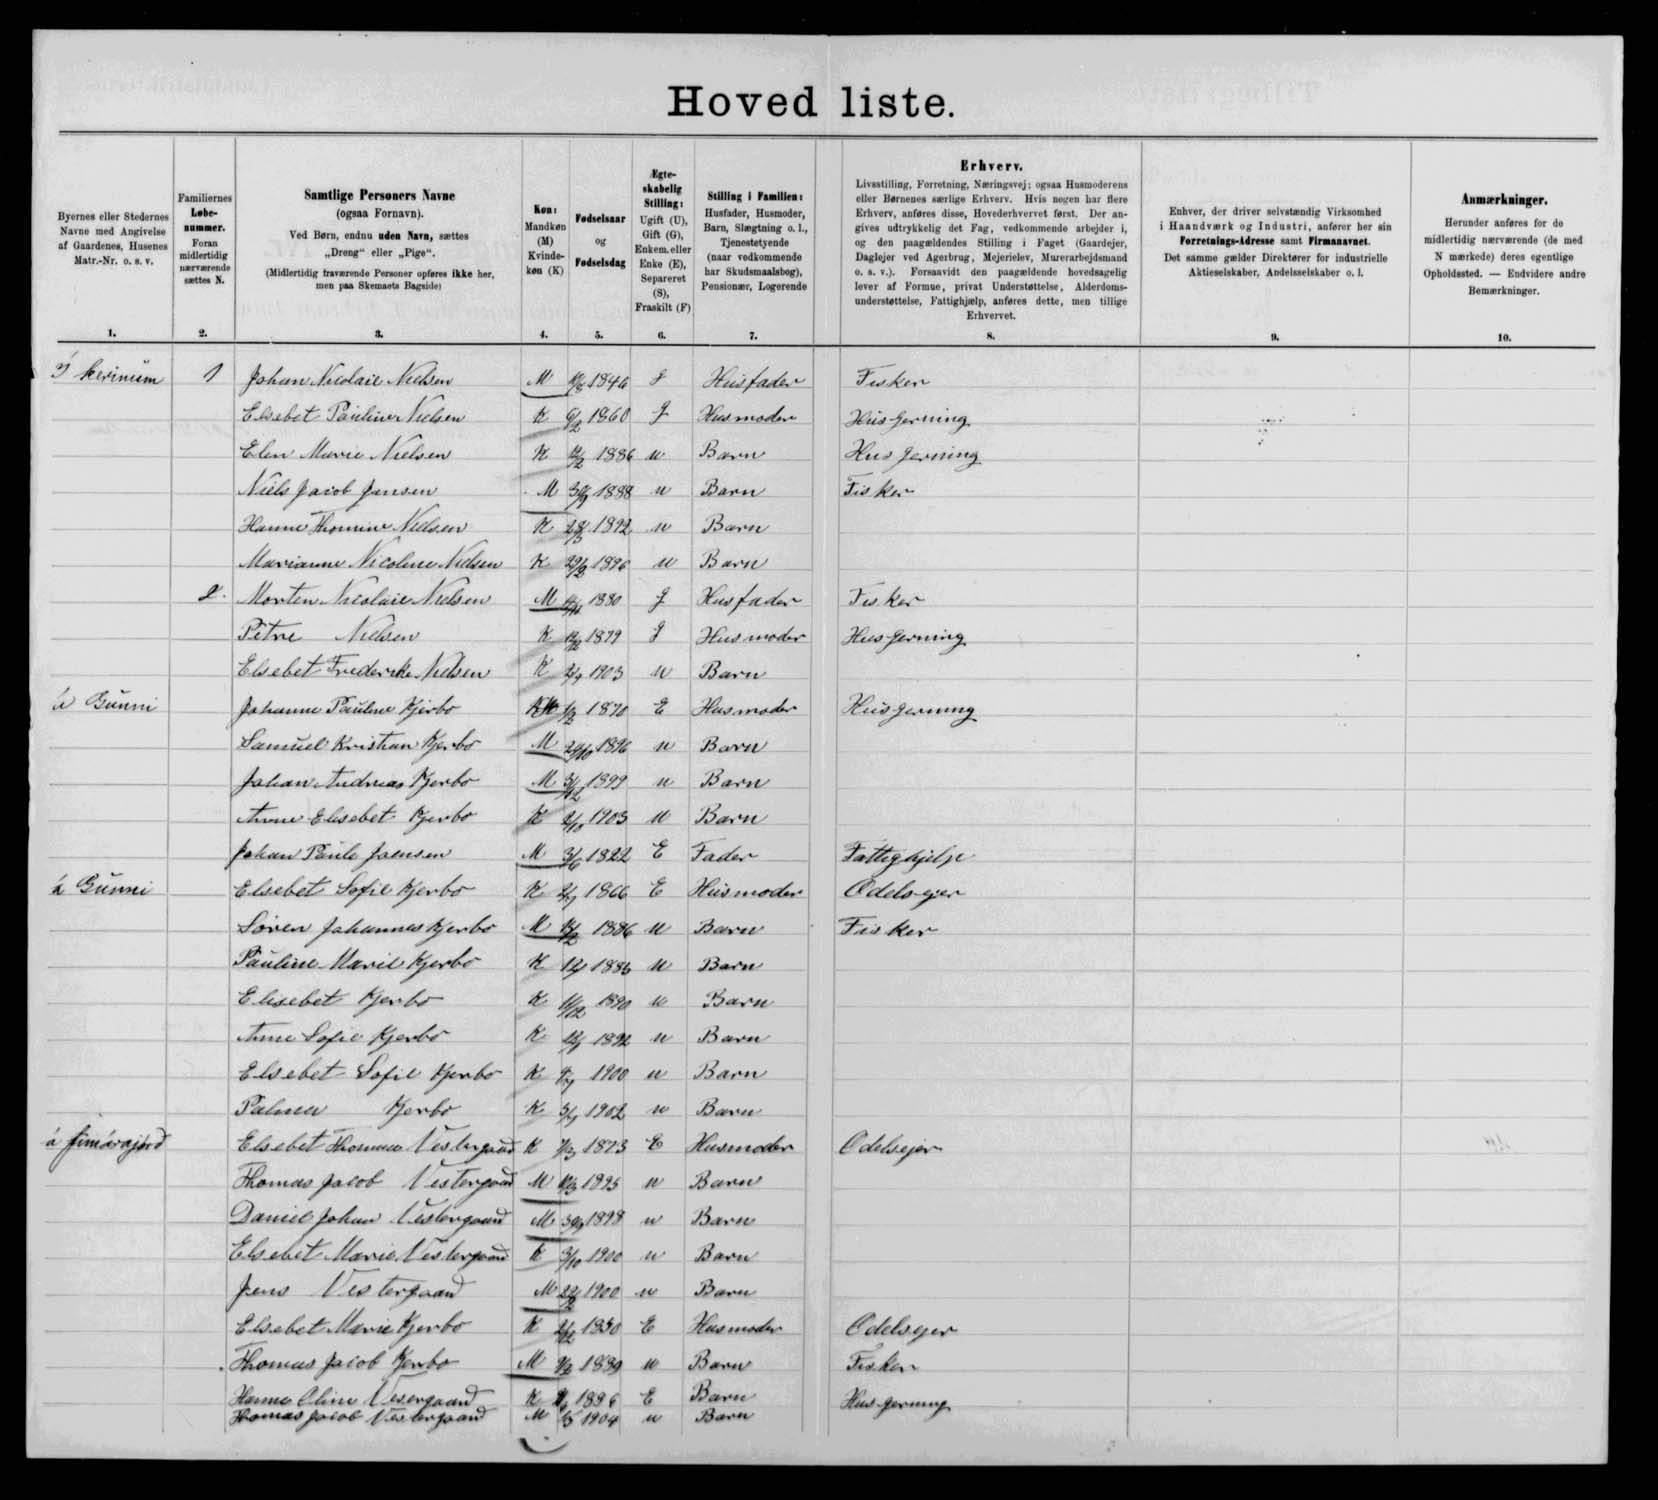 Hoved liste.
Byernes eller Stedernes Navne med Angivelse af Gaardenes, Husenes Matr.-Nr. o. s. v.
1.
Familiernes Løbenummer. Foran midlertidig nærværende sættes N.
2.
Samtlige Personers Navne
(ogsaa Fornavn).
Ved Børn, endnu uden Navn, sættes „Dreng“ eller „Pige“.
(Midlertidig fraværende Personer opføres ikke her, men paa Skemaets Bagside)
3.
Køn: Mandkøn (M) Kvindekøn (K)
4.
Fødselsaar og Fødselsdag
5.
Ægteskabelig Stilling: Ugift (U), Gift (G), Enkem. eller Enke (E), Separeret (S), Fraskilt (F)
6.
Stilling i Familien: Husfader, Husmoder, Barn, Slægtning o. l., Tjenestetyende (naar vedkommende har Skudsmaalsbog), Pensionær, Logerende
7.
Erhverv.
Livsstilling, Forretning, Næringsvej; ogsaa Husmoderens eller Børnenes særlige Erhverv. Hvis nogen har flere Erhverv, anføres disse, Hovederhvervet først. Der angives udtrykkelig det Fag, vedkommende arbejder i, og den paagældendes Stilling i Faget (Gaardejer, Daglejer ved Agerbrug, Mejerielev, Murerarbejdsmand o. s. v.). Forsaavidt den paagældende hovedsagelig lever af Formue, privat Understøttelse, Alderdomsunderstøttelse, Fattighjælp, anføres dette, men tillige Erhvervet.
8.
Enhver, der driver selvstændig Virksomhed i Haandværk og Industri, anfører her sin Forretnings-Adresse samt Firmanavnet. Det samme gælder Direktører for industrielle Aktieselskaber, Andelsselskaber o. l.
9.
Anmærkninger.
Herunder anføres for de midlertidig nærværende (de med N mærkede) deres egentlige Opholdssted. — Endvidere andre Bemærkninger.
10.
kerinum 1 Johan Nicolaie Nielsen M 1846 g Husfader Fisker
Elsebet Pauline Nielsen K 6/2 1860 g Husmoder Husgerning
Elen Marie Nielsen K 1886 u Barn Husgerning
Niels Jacob Jensen M 1888 u Barn Fisker
Hanne Thomine Nielsen K 1892 u Barn
Marianne Nicoline Nielsen K 1896 u Barn
2. Morten Nicolaie Nielsen M 1880 g Husfader Fisker
Petre Nielsen K 1879 g Husmoder Husgerning
Elsebet Frederikke Nielsen K 1903 u Barn
á Gunni Johanne Pauline Kjerbo K 1870 E Husmoder Husgerning
Samuel Kristian Kjerbo M 1896 u Barn
Johan Andreas Kjerbo M 3/12 1899 u Barn
Anne Elisebet Kjerbo K 2/10 1903 u Barn
Johan Paule Joensen M 3/6 1822 E Fader Fattighjelp
á Gunni Elsebet Sofie Kjerbo K 1866 E Husmoder Odelsejer
Søren Johannes Kjerbo M 1886 u Barn Fisker
Pauline Marie Kjerbo K u Barn
Elisebet Kjerbo K 11/12 1890 u Barn
Anne Sofie Kjerbo K 1892 u Barn
Elsebet Sofie Kjerbo K 1900 u Barn
Palma Kjerbo K 1902 u Barn
á Elsebet Thomasa Vestergaard K 1873 E Husmoder Odelsejer
Thomas Jacob Vestergaard M 1895 u Barn
Daniel Johan Vestergaard M 1898 u Barn
Elsebet Marie Vestergaard K 3/10 1900 u Barn
Jens Vestergaard M 1900 u Barn
Elsebet Marie Kjerbo K E Husmoder Odelsejer
Thomas Jacob Kjerbo M 1889 u Barn Fisker
Hanna Oline Vesergaard K E Barn Husgerning
Thomas Jacob Vestergaard M 1904 u Barn